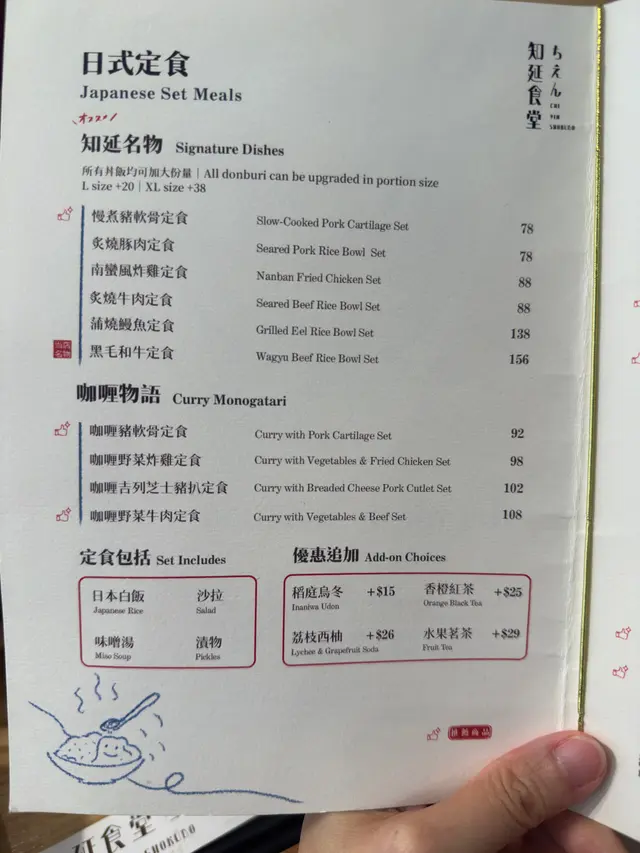 日式定食
Japanese Set Meals
知延食堂
ちえん
CHI
YEN
SHOKUDO
オススメ
知延名物 Signature Dishes
所有丼飯均可加大份量｜All donburi can be upgraded in portion size
L size +20｜XL size +38
慢煮豬軟骨定食 Slow-Cooked Pork Cartilage Set 78
炙燒豚肉定食 Seared Pork Rice Bowl Set 78
南蠻風炸雞定食 Nanban Fried Chicken Set 88
炙燒牛肉定食 Seared Beef Rice Bowl Set 88
蒲燒鰻魚定食 Grilled Eel Rice Bowl Set 138
当店名物 黑毛和牛定食 Wagyu Beef Rice Bowl Set 156
咖喱物語 Curry Monogatari
咖喱豬軟骨定食 Curry with Pork Cartilage Set 92
咖喱野菜炸雞定食 Curry with Vegetables & Fried Chicken Set 98
咖喱吉列芝士豬扒定食 Curry with Breaded Cheese Pork Cutlet Set 102
咖喱野菜牛肉定食 Curry with Vegetables & Beef Set 108
定食包括 Set Includes
日本白飯 沙拉
Japanese Rice Salad
味噌湯 漬物
Miso Soup Pickles
優惠追加 Add-on Choices
稻庭烏冬 +$15 香橙紅茶 +$25
Inaniwa Udon Orange Black Tea
荔枝西柚 +$26 水果茗茶 +$29
Lychee & Grapefruit Soda Fruit Tea
推介商品
延食堂
SHOKUDO